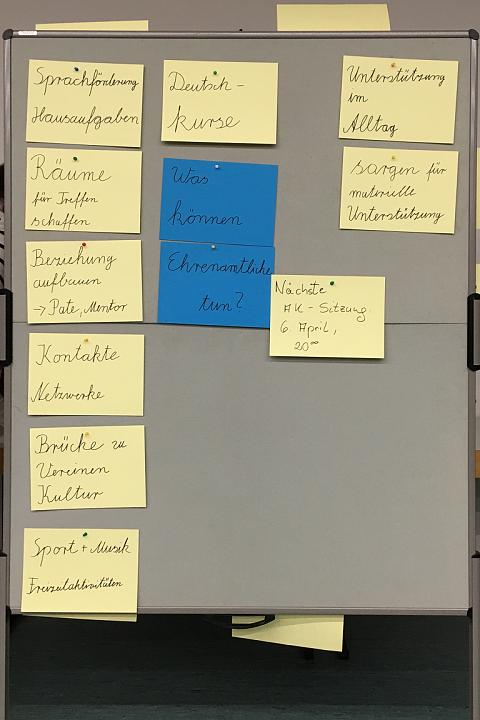 Sprachförderung
Hausaufgaben
Räume
für Treffen
schaffen
Beziehung
aufbauen
→ Pate, Mentor
Kontakte
Netzwerke
Brücke zu
Vereinen
Kultur
Sport + Musik
Freizeitaktivitäten
Deutsch-
kurse
Was
können
Ehrenamtliche
tun?
Nächste
AK-Sitzung
6. April,
20⁰⁰
Unterstützung
im
Alltag
sorgen für
materielle
Unterstützung